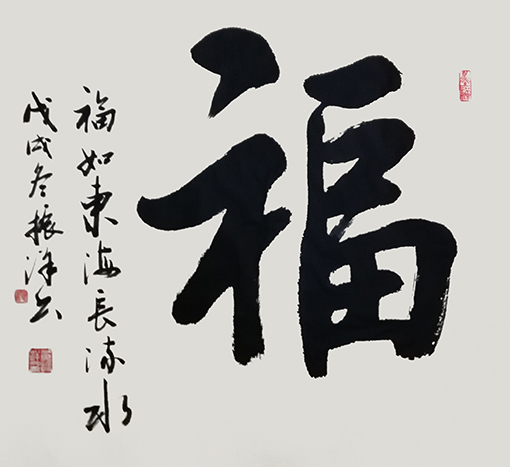 福
福如東海長流水
戊戌冬振洋书